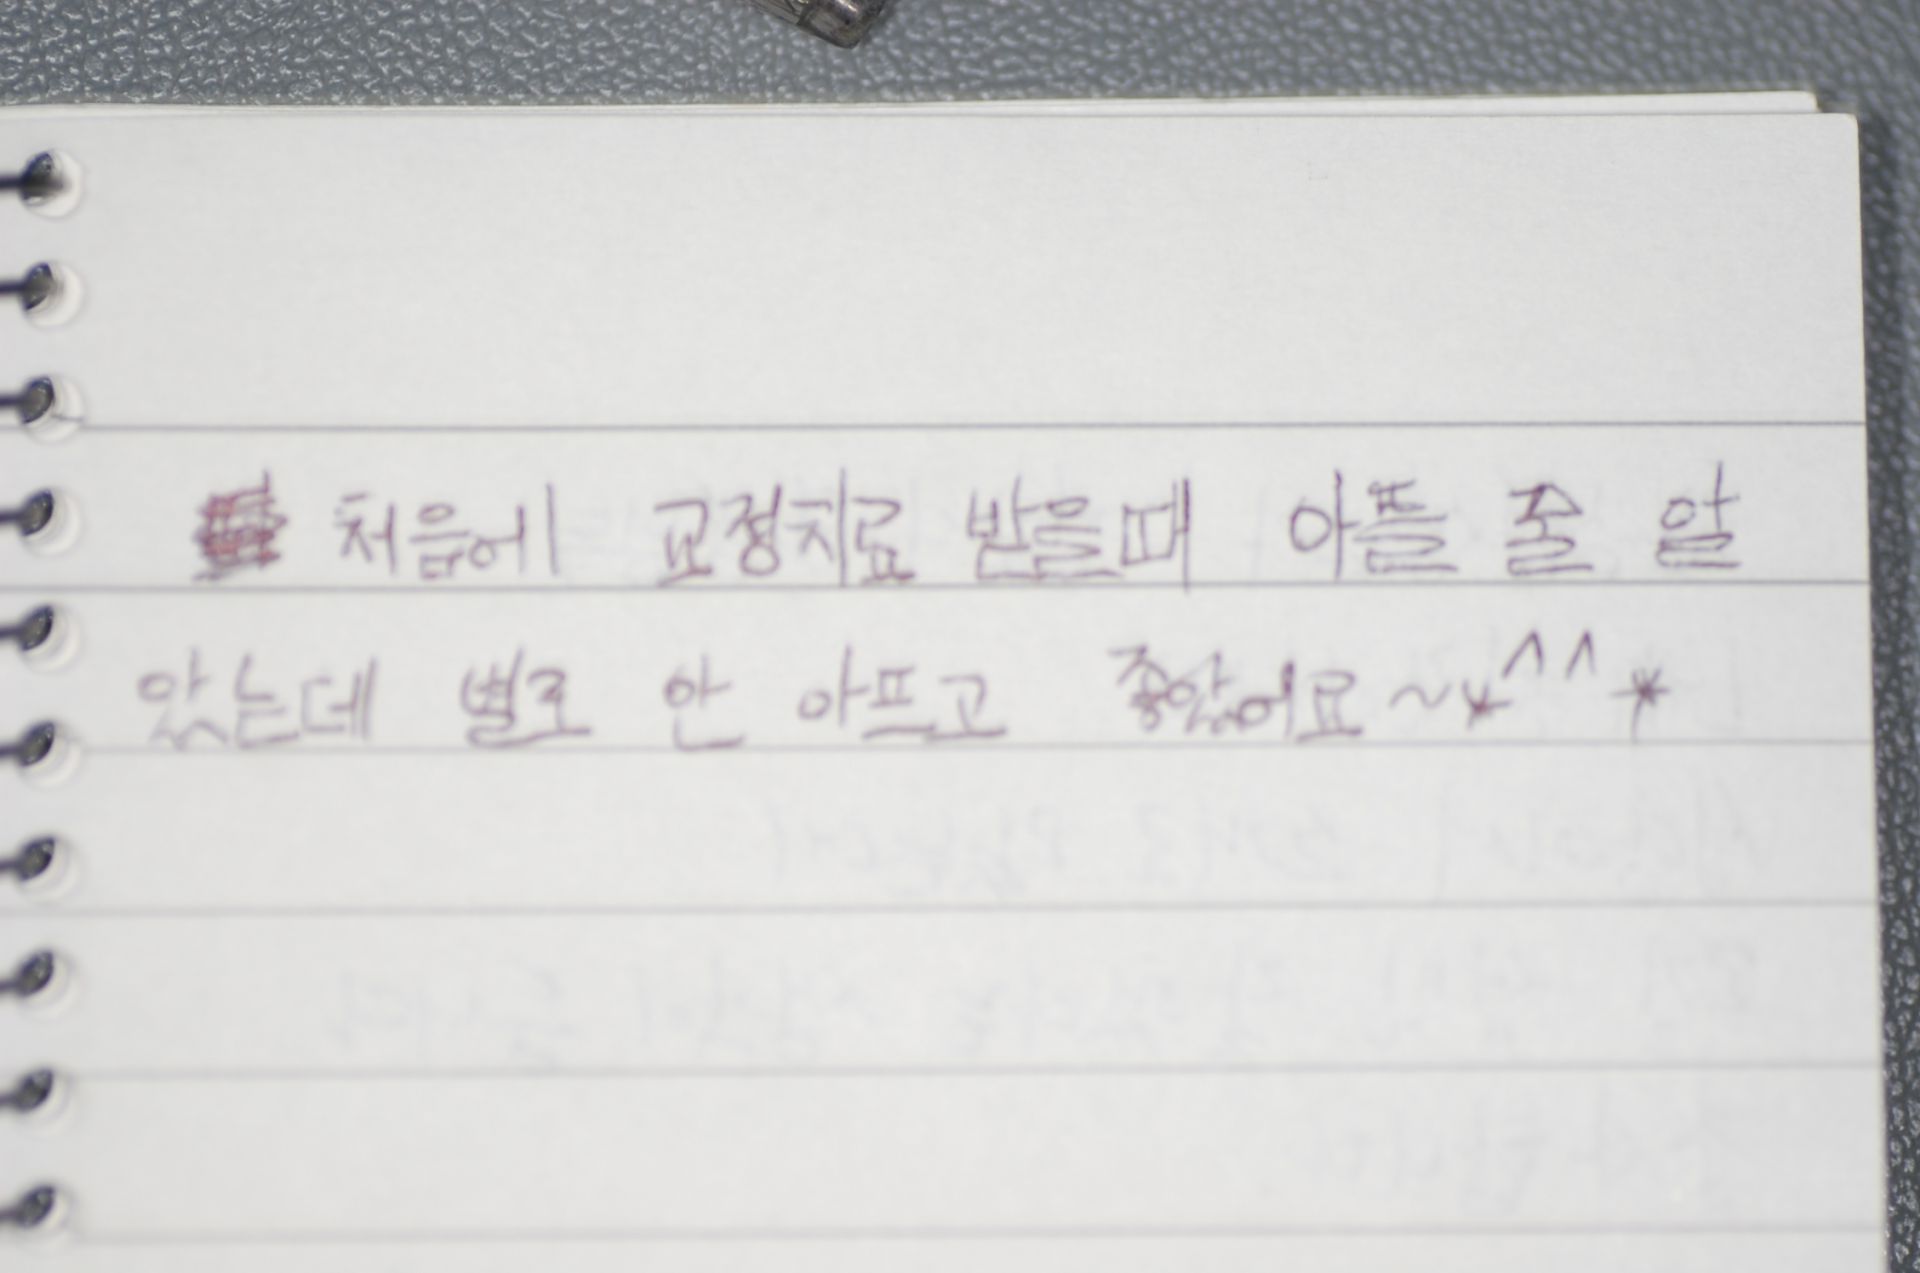 처음에 교정치료 받을때 아플 줄 알
았는데 별로 안 아프고 좋았어요~*^^*